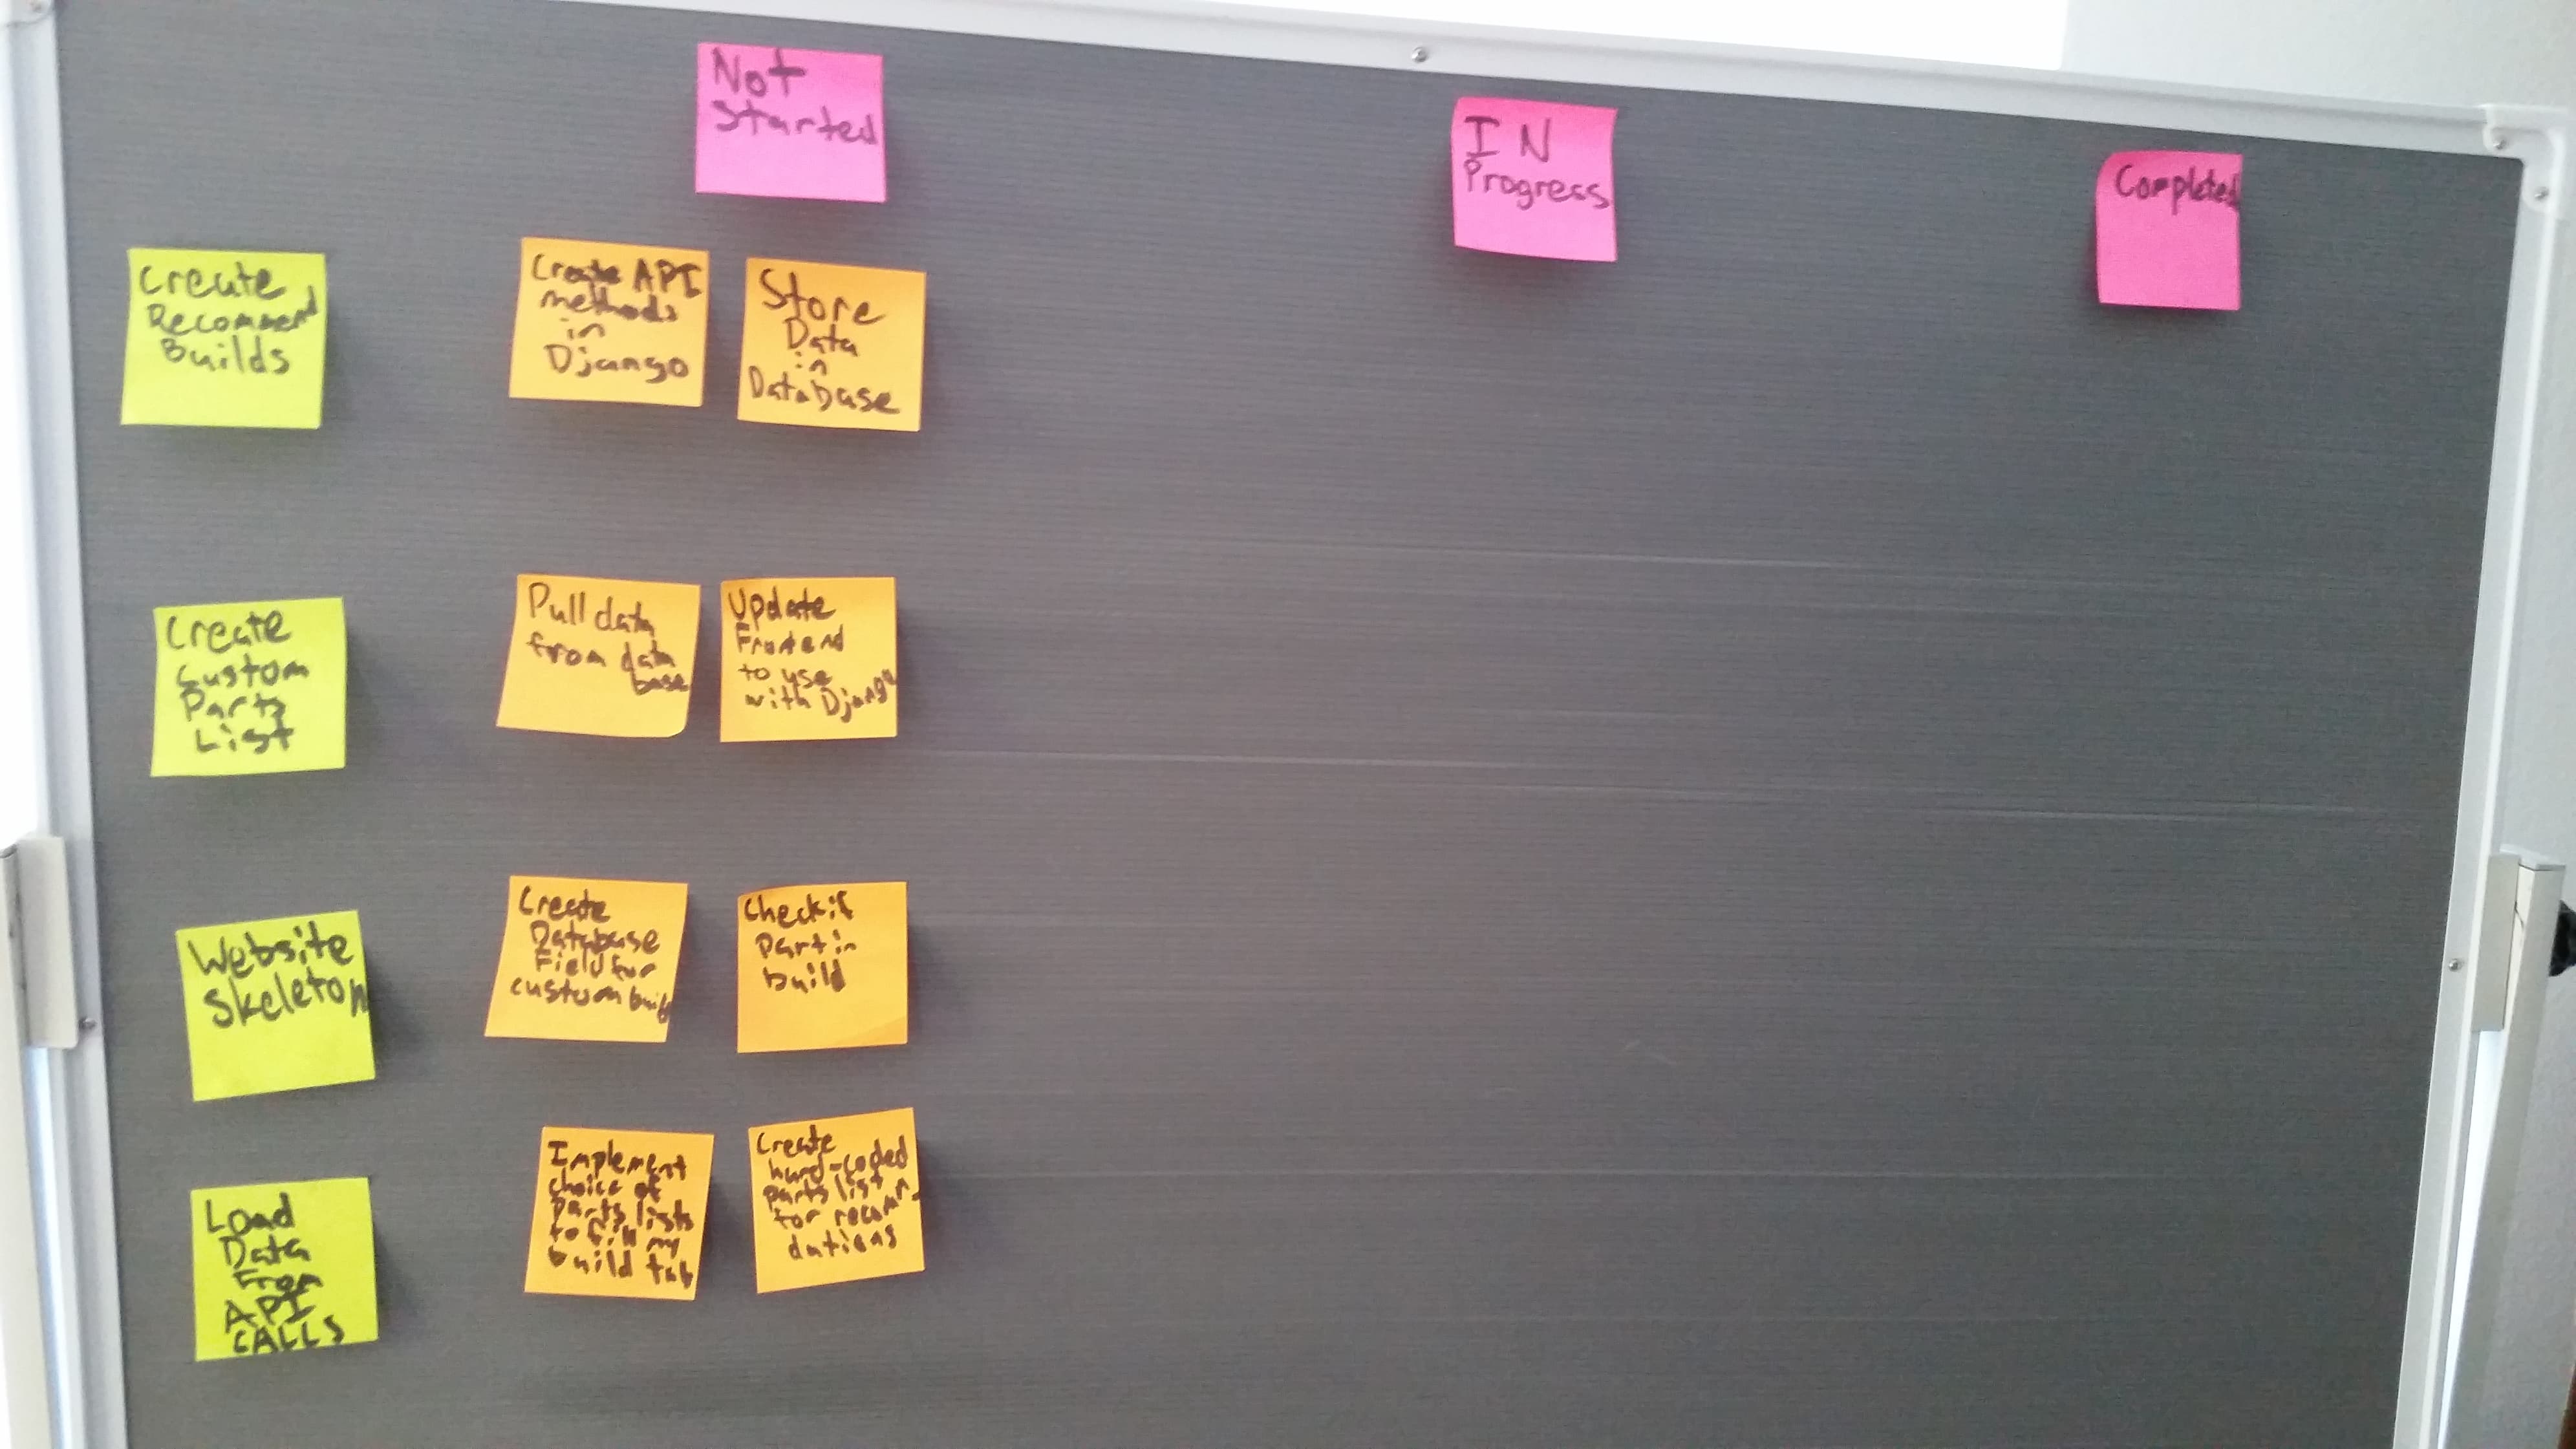 Not
Started
IN
Progress
Completed
Create
Recommend
Builds
Create API
methods
in
Django
Store
Data
in
Database
Create
Custom
Parts
List
Pull data
from data
base
Update
Frontend
to use
with Django
Website
Skeleton
Create
Database
Field for
custom build
Check if
Part in
build
Load
Data
From
API
CALLS
Implement
choice of
parts lists
to fill my
build tab
Create
hard-coded
parts list
for recom-
dations